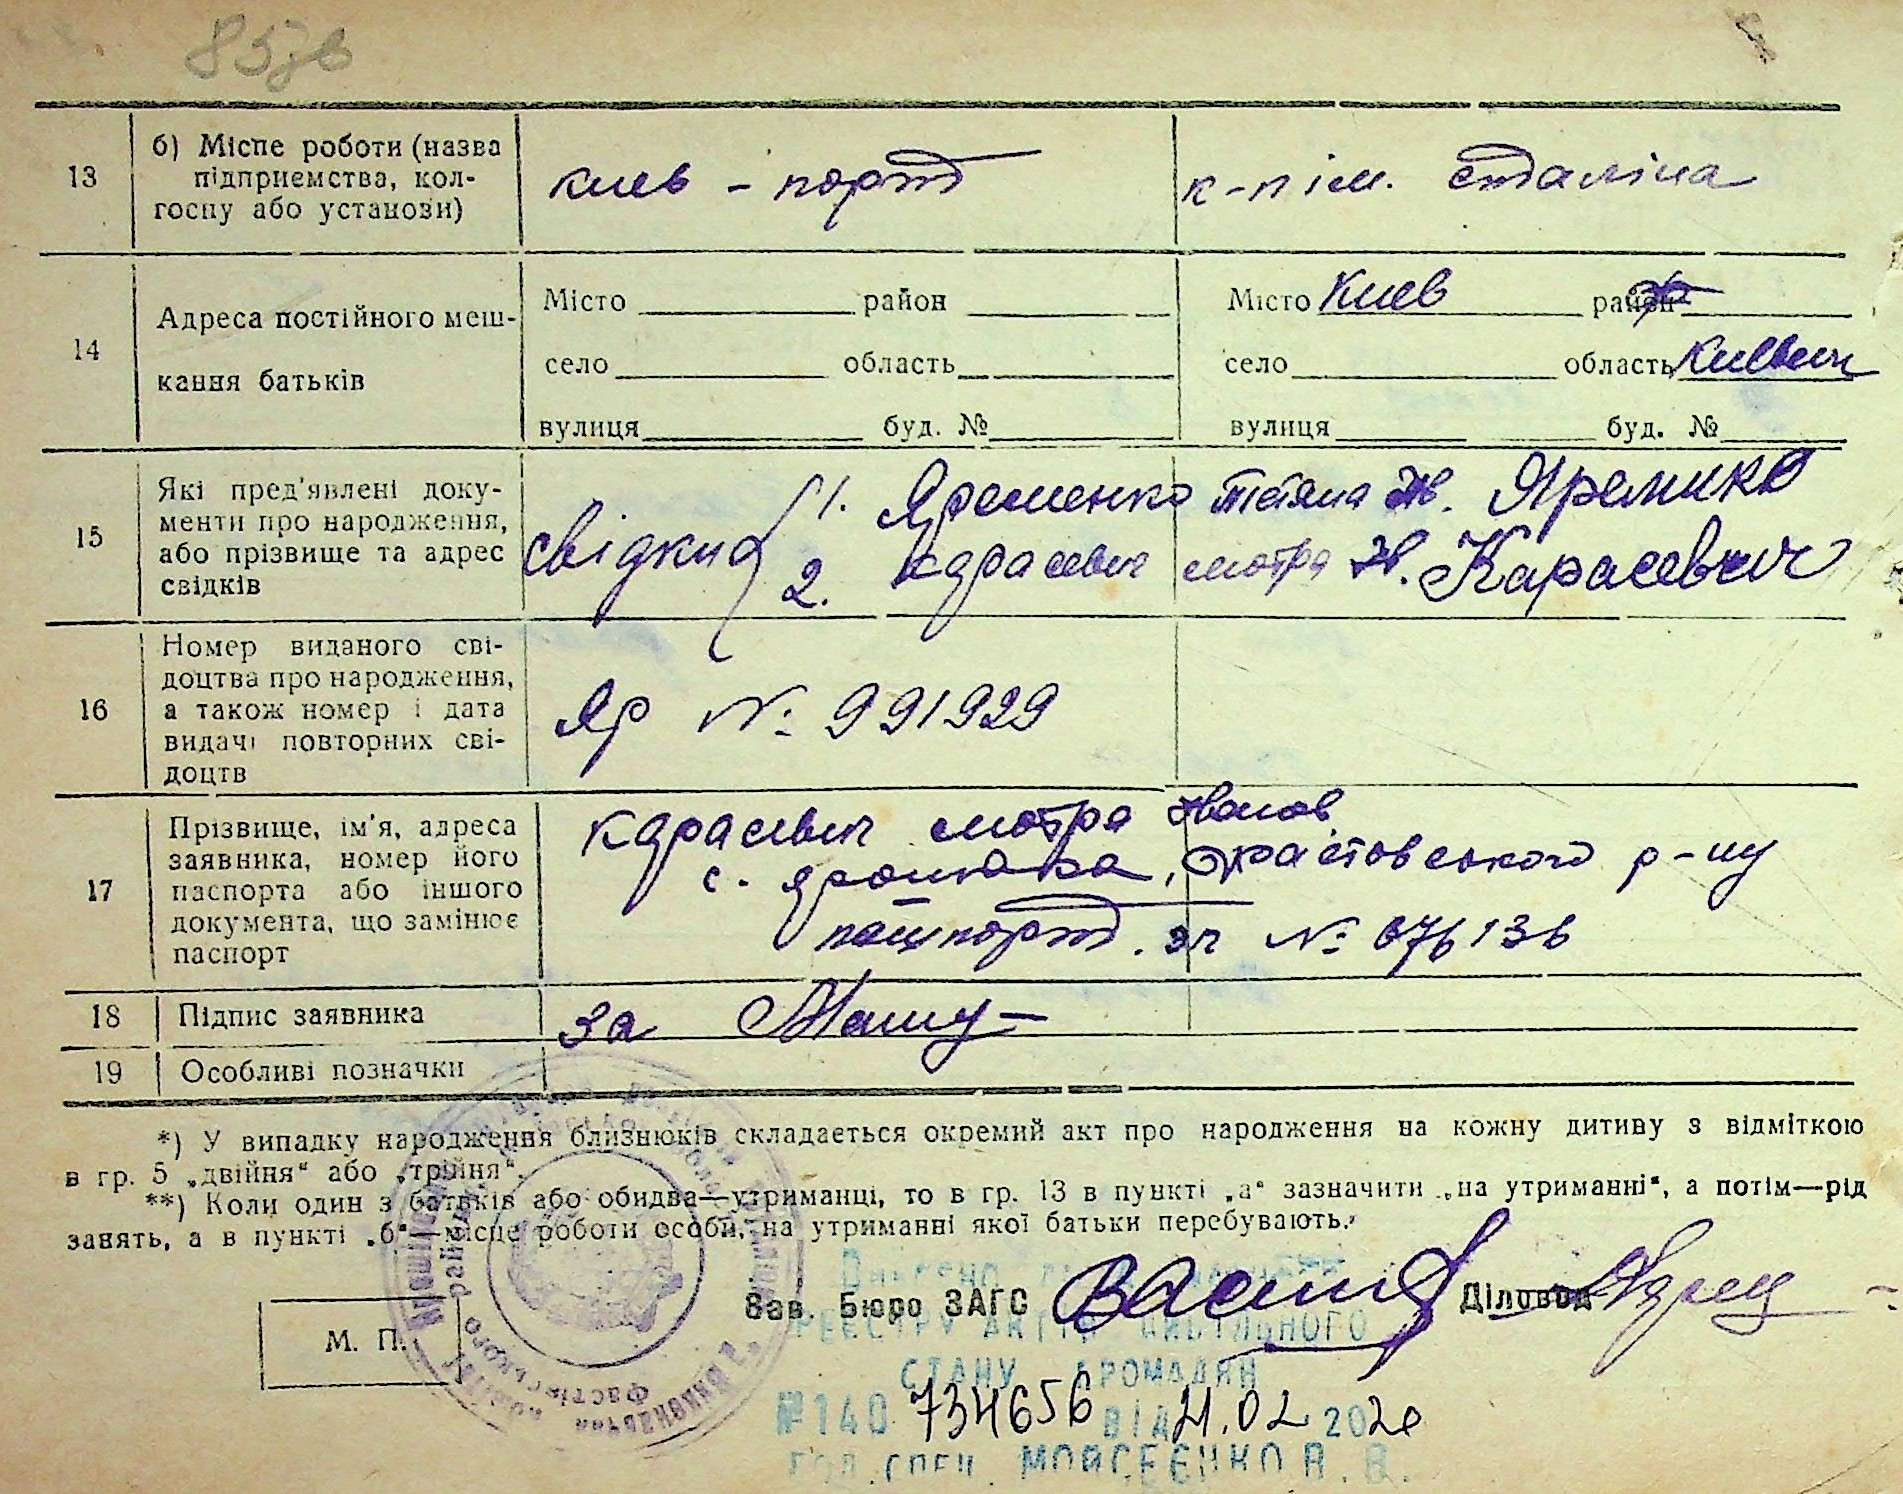 13 б) Місце роботи (назва
підприємства, кол-
госпу або установи)
Киев - порт
к-п ім. Сталіна
14 Адреса постійного меш-
кання батьків
Місто район
село область
вулиця буд. №
Місто Киев район
село область Київськ
вулиця буд. №
15 Які пред'явлені доку-
менти про народження,
або прізвище та адрес
свідків
свідки 1. Яременко Тетяна Ів. Яременко
2. Карасевич Мотря Ів. Карасевич
16 Номер виданого сві-
доцтва про народження,
а також номер і дата
видачі повторних сві-
доцтв
ЯР № 991929
17 Прізвище, ім'я, адреса
заявника, номер його
паспорта або іншого
документа, що замінює
паспорт
Карасевич Мотря Іванов
с. Ярошівка, Фастовського р-ну
пашпорт. № 676136
18 Підпис заявника
за
19 Особливі позначки
*) У випадку народження близнюків складається окремий акт про народження на кожну дитину з відміткою
в гр. 5 „двійня“ або „трійня“.
**) Коли один з батьків або обидва—утриманці, то в гр. 13 в пункті „а“ зазначити „на утриманні“, а потім—рід
занять, а в пункті „б“—місце роботи особи, на утриманні якої батьки перебувають.
Зав. Бюро ЗАГС Діловод
М. П.
РЕЄСТРУ АКТІВ ЦИВІЛЬНОГО
СТАНУ ГРОМАДЯН
№140 734656 ВІД 21.02 2020
ГОЛ. СПЕЦ. МОЙСЕЄНКО В. В.